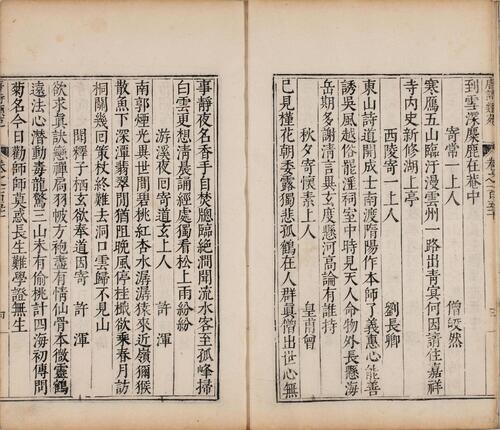 到雪深麋鹿在菴中
寄常一上人　僧皎然
寒鴈五山臨汗漫雲州一路出青冥何因請住嘉祥
寺内史新修湖上亭
西陵寄一上人　劉長卿
東山詩道開成士南渡隋陽作本師了義惠心能善
誘吳風越俗罷淫祠室中時見天人命物外長懸海
岳期多謝清言與玄度懸河高論有誰持
秋夕寄懷素上人　皇甫曾
已見槿花朝委露獨悲孤鶴在人群真僧出世心無
事靜夜名香手自焚牕臨絶澗聞流水客至孤峰掃
白雲更想清晨誦經處獨看松上雨紛紛
游溪夜回寄道玄上人　許渾
南郭煙光與世間碧桃紅杏水潺潺猿來近嶺獼猴
散魚下深潭翡翠閒猶阻晚風停桂檝欲乘春月訪
桐關幾回策杖終難去洞口雲歸不見山
聞釋子栖玄欲奉道因寄　許渾
欲求真訣戀禪扃羽帔方袍盡有情仙骨本微靈鶴
遠法心潛動毒龍驚三山未有偷桃計四海初傳問
菊名今日勸師師莫惑長生難學證無生